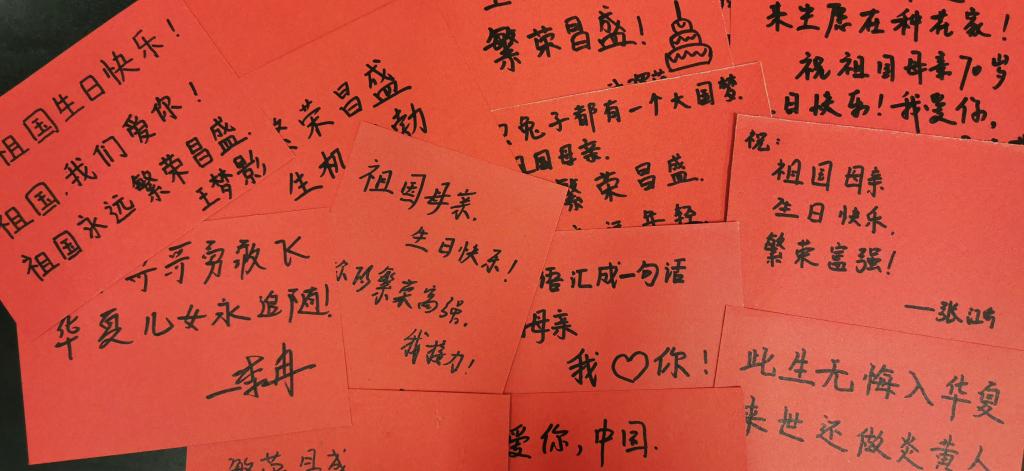 祖国生日快乐!
祖国,我们爱你!
祖国永远繁荣昌盛.
王梦影
荣昌盛
生机
勃
繁荣昌盛!
来生愿在种花家!
祝祖国母亲70岁
日快乐!我爱你,
兔子都有一个大国梦.
国母亲.
繁荣昌盛.
年轻.
祝:
祖国母亲
生日快乐,
繁荣富强!
祖国母亲.
生日快乐!
我接力!
哥勇敢飞
华夏儿女永追随!
李冉
语汇成一句话
母亲
我♡你!
此生无悔入华夏
来世还做炎黄人
爱你,中国.
繁荣昌盛